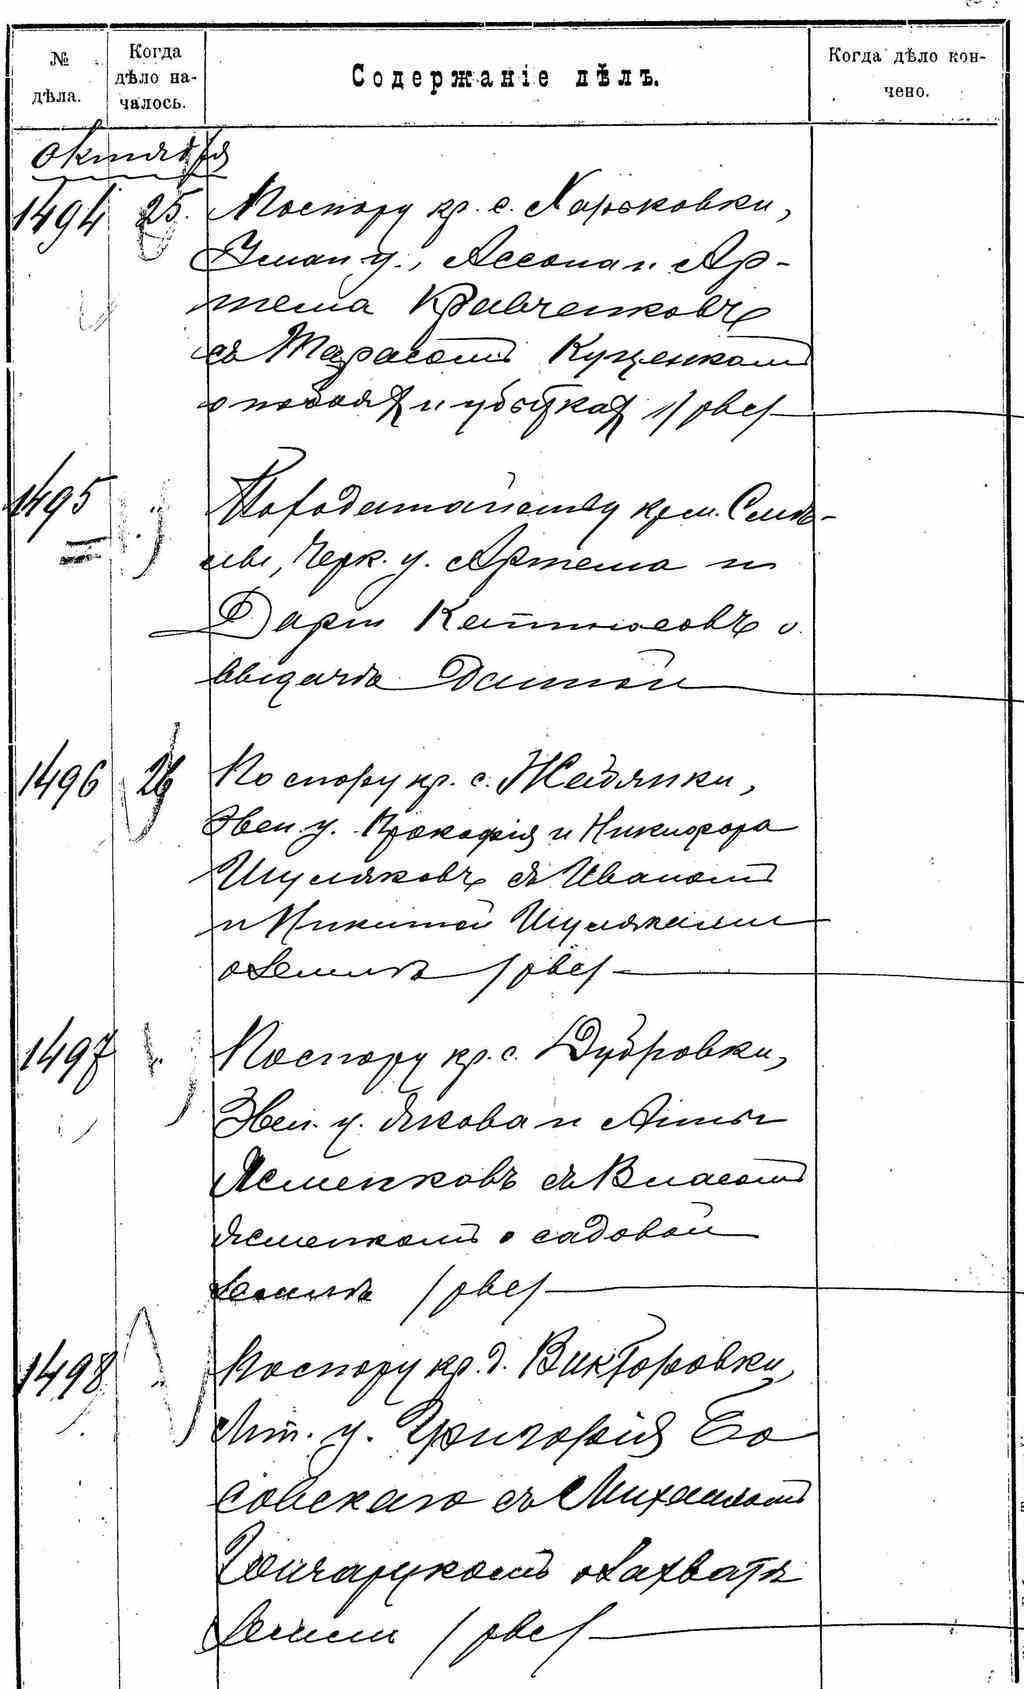 № дѣла.
Когда дѣло на-чалось.
Содержаніе дѣлъ.
Когда дѣло кон-чено.
октября
1494 25. По спору кр. с. Харьковки,
Уман. у., Ассона и Ар-
тема Кравченковъ
съ Тарасомъ Куценкомъ
о побоях и убытках /рвс/
1495 " По ходатайству кр. м. Смѣ-
лы, Черк. у. Артема и
Дарьи о
выдачѣ данной
1496 26 По спору кр. с. Жабянки,
Звен. у. Прокофія и Никифора
Шуляковъ съ Иваномъ
и Никитой Шуляками
о землѣ /рвс/
1497 " По спору кр. с. Дубровки,
Звен. у. Якова и Анны
Ясменковъ съ Власомъ
Ясменкомъ о садовой
землѣ /рвс/
1498 " По спору кр. д. Викторовки,
Лип. у. Григорія Бо
совскаго съ Михаиломъ
Гончарукомъ о захватѣ
земли /рвс/